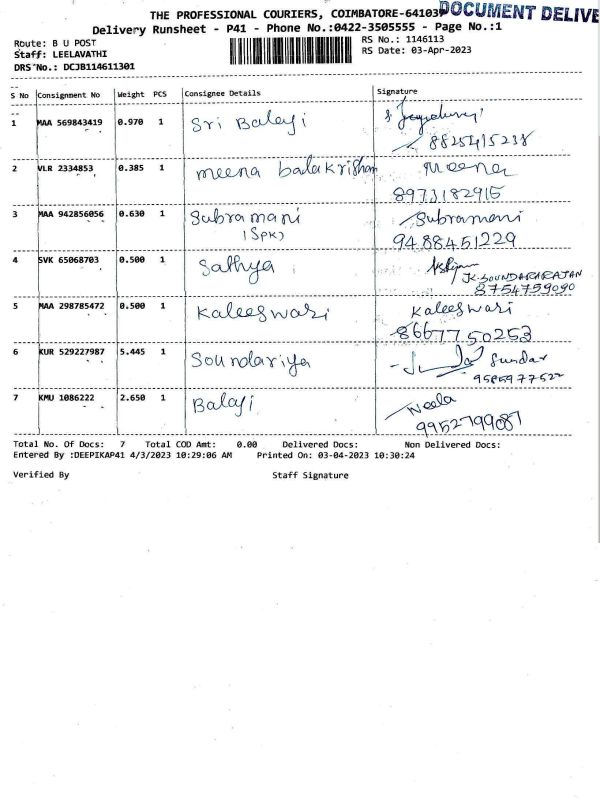 THE PROFESSIONAL COURIERS, COIMBATORE-641037
DOCUMENT DELIVE
Delivery Runsheet - P41 - Phone No.:0422-3505555 - Page No.:1
Route: B U POST
RS No.: 1146113
Staff: LEELAVATHI
RS Date: 03-Apr-2023
DRS No.: DCJB114611301
S No Consignment No Weight PCS Consignee Details Signature
1 MAA 569843419 0.970 1 Sri Balaji
8825415238
2 VLR 2334853 0.385 1 meena balakrishnan Meena
8973182915
3 MAA 942856056 0.630 1 Subramani Subramani
(SPK) 9488451229
4 SVK 65068703 0.500 1 Sathya
JK-SOUNDARARAJAN
8754759090
5 MAA 298785472 0.500 1 Kaleeswari Kaleeswari
8667750253
6 KUR 529227987 5.445 1 Soundariya Sundar
7 KMU 1086222 2.650 1 Balaji Neela
9952799087
Total No. Of Docs: 7 Total COD Amt: 0.00 Delivered Docs: Non Delivered Docs:
Entered By :DEEPIKAP41 4/3/2023 10:29:06 AM Printed On: 03-04-2023 10:30:24
Verified By Staff Signature